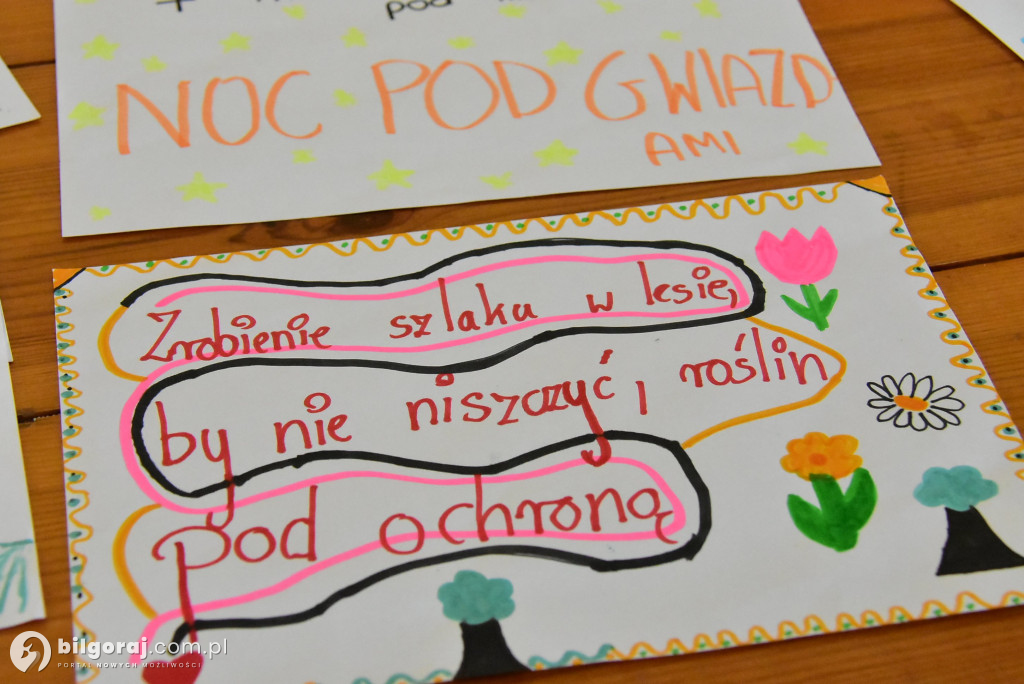 pod
NOC POD GWIAZD
AMI
Zrobienie szlaku w lesie,
by nie niszczyć, roślin
pod ochroną
bilgoraj.com.pl
PORTAL NOWYCH MOŻLIWOŚCI